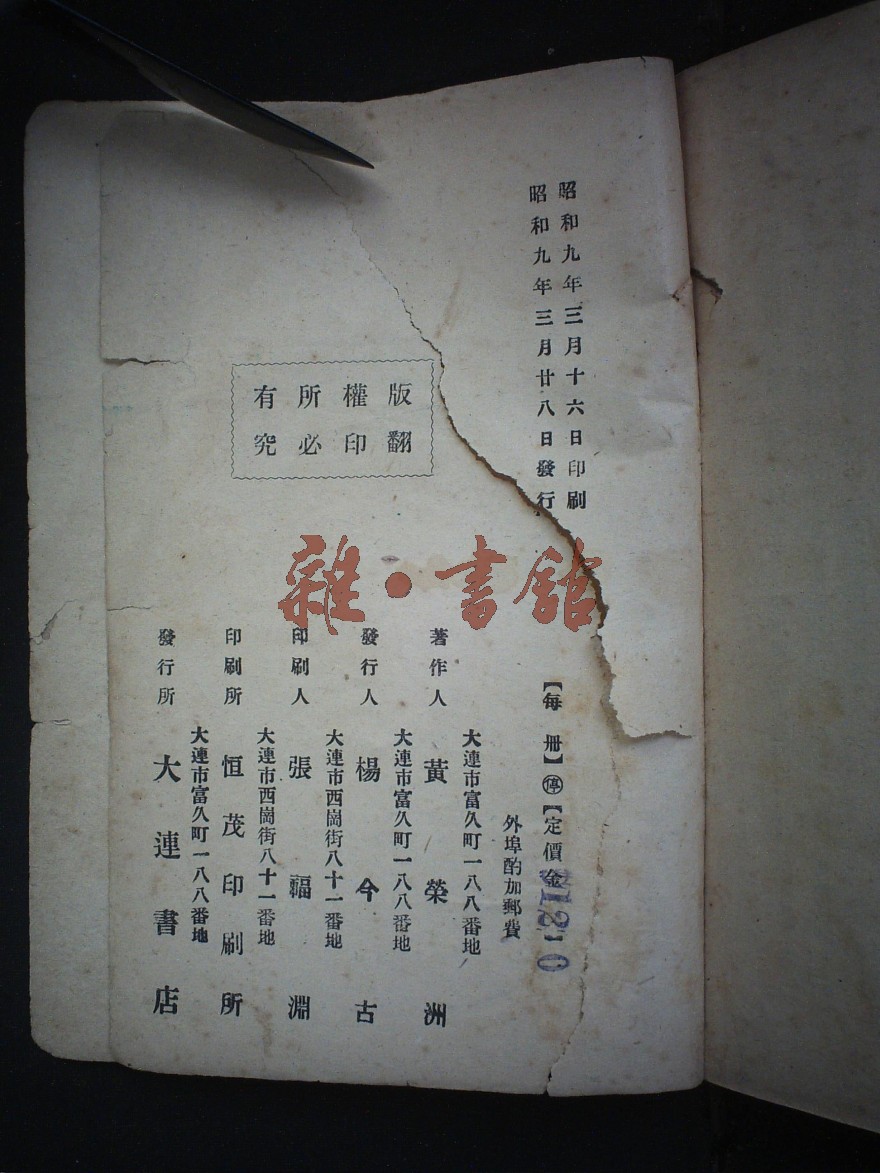 昭和九年三月十六日印刷
昭和九年三月廿八日發行
版權所有
翻印必究
【每册】㊡【定價金
外埠酌加郵費
大連市富久町一八八番地
著作人 黃榮洲
大連市富久町一八八番地
發行人 楊今古
大連市西崗街八十一番地
印刷人 張福淵
大連市西崗街八十一番地
印刷所 恒茂印刷所
大連市富久町一八八番地
發行所 大連書店
雜·書館